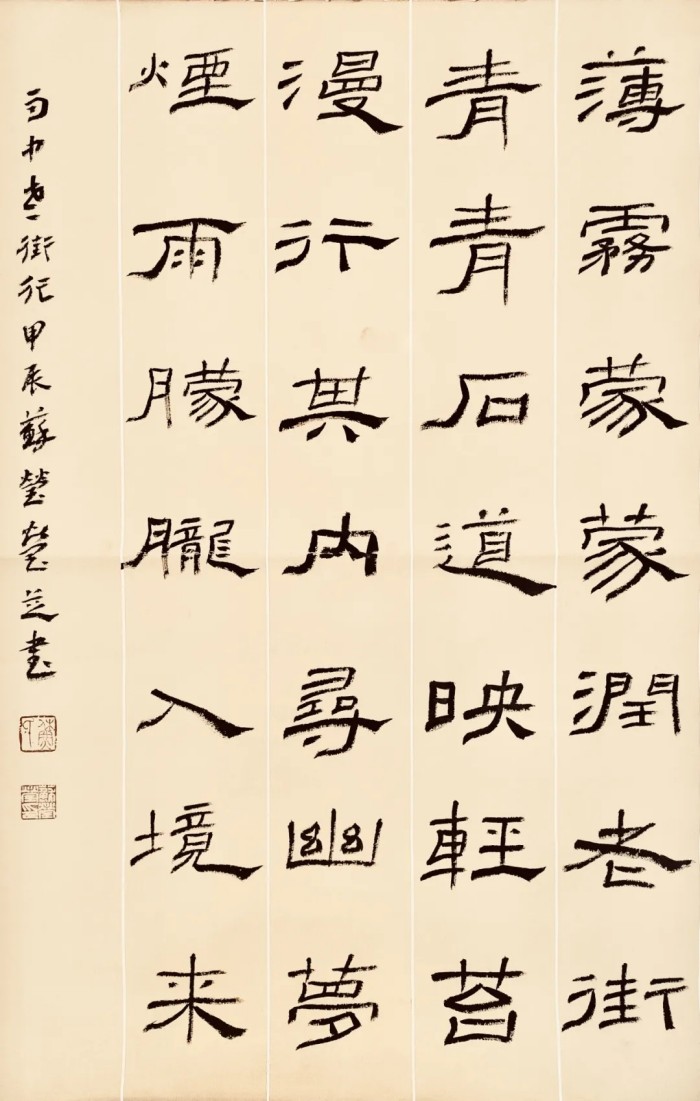 薄霧蒙蒙潤老街
青青石道映輕苔
漫行其内尋幽夢
煙雨朦朧入境来
雨中老街行甲辰蘇瑩瑩並書